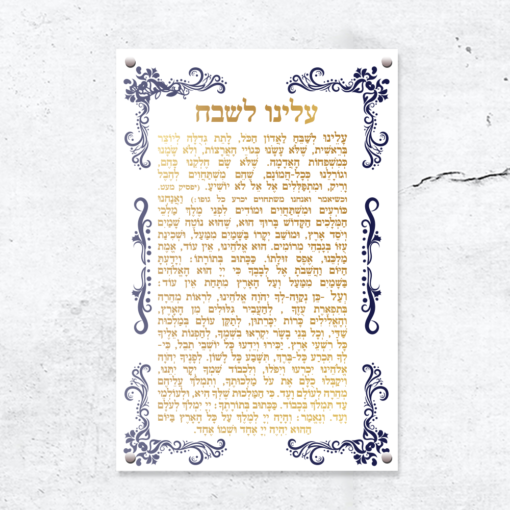 עלינו לשבח
עָלֵינוּ לְשַׁבֵּחַ לַאֲדוֹן הַכֹּל, לָתֵת גְּדֻלָּה לְיוֹצֵר
בְּרֵאשִׁית, שֶׁלֹּא עָשָׂנוּ כְּגוֹיֵי הָאֲרָצוֹת, וְלֹא שָׂמָנוּ
כְּמִשְׁפְּחוֹת הָאֲדָמָה. שֶׁלֹּא שָׂם חֶלְקֵנוּ כָּהֶם,
וְגוֹרָלֵנוּ כְּכָל-הֲמוֹנָם, שֶׁהֵם מִשְׁתַּחֲוִים לְהֶבֶל
וָרִיק, וּמִתְפַּלְלִים אֶל אֵל לֹא יוֹשִׁיעַ. (יפסיק מעט.
וכשיאמר ואנחנו משתחוים יכרע כל גופו:) וַאֲנַחְנוּ
כּוֹרְעִים וּמִשְׁתַּחֲוִים וּמוֹדִים לִפְנֵי מֶלֶךְ מַלְכֵי
הַמְּלָכִים הַקָּדוֹשׁ בָּרוּךְ הוּא, שֶׁהוּא נוֹטֶה שָׁמַיִם
וְיוֹסֵד אָרֶץ, וּמוֹשַׁב יְקָרוֹ בַּשָּׁמַיִם מִמַּעַל, וּשְׁכִינַת
עֻזּוֹ בְּגָבְהֵי מְרוֹמִים, הוּא אֱלֹהֵינוּ, אֵין עוֹד, אֱמֶת
מַלְכֵּנוּ, אֶפֶס זוּלָתוֹ, כַּכָּתוּב בְּתוֹרָתוֹ: וְיָדַעְתָּ
הַיּוֹם וַהֲשֵׁבֹתָ אֶל לְבָבֶךָ כִּי יְיָ הוּא הָאֱלֹהִים
בַּשָּׁמַיִם מִמַּעַל וְעַל הָאָרֶץ מִתָּחַת אֵין עוֹד:
וְעַל -כֵּן נְקַוֶּה-לְּךָ יְהֹוָה אֱלֹהֵינוּ, לִרְאוֹת מְהֵרָה
בְּתִפְאֶרֶת עֻזֶּךָ , לְהַעֲבִיר גִּלּוּלִים מִן הָאָרֶץ,
וְהָאֱלִילִים כָּרוֹת יִכָּרֵתוּן, לְתַקֵּן עוֹלָם בְּמַלְכוּת
שַׁדַּי, וְכָל בְּנֵי בָשָׂר יִקְרְאוּ בִשְׁמֶךָ, לְהַפְנוֹת אֵלֶיךָ
כָּל רִשְׁעֵי אָרֶץ. יַכִּירוּ וְיֵדְעוּ כָּל יוֹשְׁבֵי תֵבֵל, כִּי-
לְךָ תִּכְרַע כָּל-בֶּרֶךְ, תִּשָּׁבַע כָּל לָשׁוֹן. לְפָנֶיךָ יְהֹוָה
אֱלֹהֵינוּ יִכְרְעוּ וְיִפֹּלוּ, וְלִכְבוֹד שִׁמְךָ יְקָר יִתֵּנוּ,
וִיקַבְּלוּ כֻלָּם אֶת עֹל מַלְכוּתֶךָ, וְתִמְלֹךְ עֲלֵיהֶם
מְהֵרָה לְעוֹלָם וָעֶד. כִּי הַמַּלְכוּת שֶׁלְּךָ הִיא, וּלְעוֹלְמֵי
עַד תִּמְלֹךְ בְּכָבוֹד. כַּכָּתוּב בְּתוֹרָתֶךָ: יְיָ יִמְלֹךְ לְעֹלָם
וָעֶד. וְנֶאֱמַר: וְהָיָה יְיָ לְמֶלֶךְ עַל כָּל הָאָרֶץ בַּיּוֹם
הַהוּא יִהְיֶה יְיָ אֶחָד וּשְׁמוֹ אֶחָד.